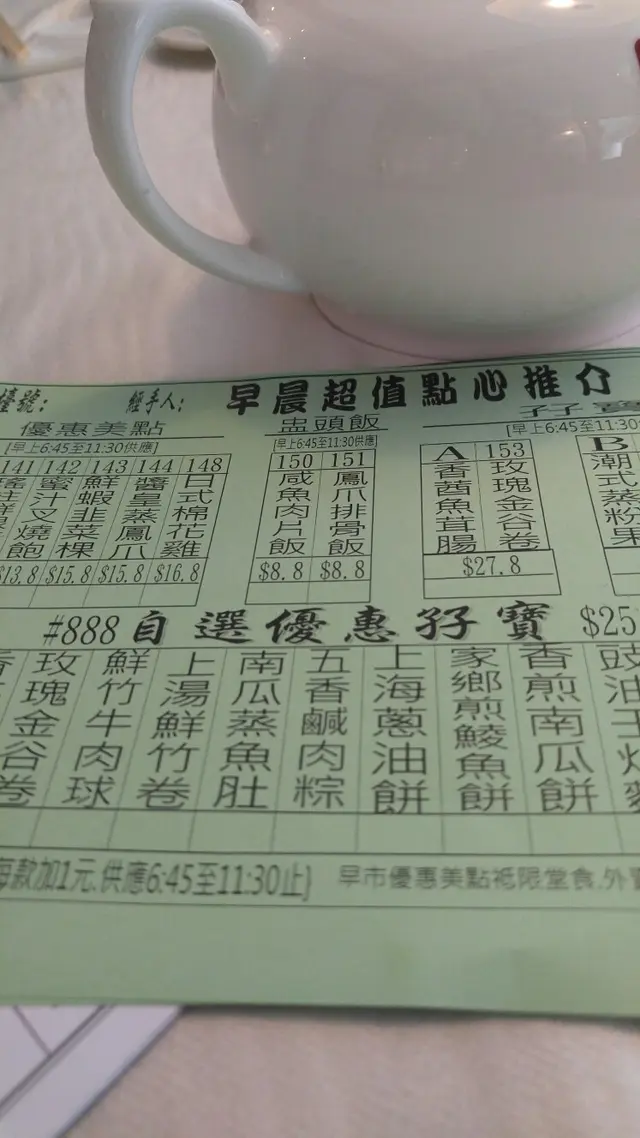 檯號: 經手人: 早晨超值點心推介
優惠美點
[早上6:45至11:30供應]
141 142 143 144 148
蜜汁叉燒飽
鮮蝦韭菜粿
醬皇蒸鳳爪
日式棉花雞
$13.8 $15.8 $15.8 $16.8
盅頭飯
[早上6:45至11:30供應]
150 151
咸魚肉片飯
鳳爪排骨飯
$8.8 $8.8
孖寶
[早上6:45至11:30
A 153
香茜魚茸腸
玫瑰金谷卷
$27.8
B
潮式蒸粉果
#888自選優惠孖寶 $25
玫瑰金谷卷
鮮竹牛肉球
上湯鮮竹卷
南瓜蒸魚肚
五香鹹肉粽
上海蔥油餅
家鄉煎鯪魚餅
香煎南瓜餅
豉油王
每款加1元.供應6:45至11:30止} 早市優惠美點祗限堂食.外賣